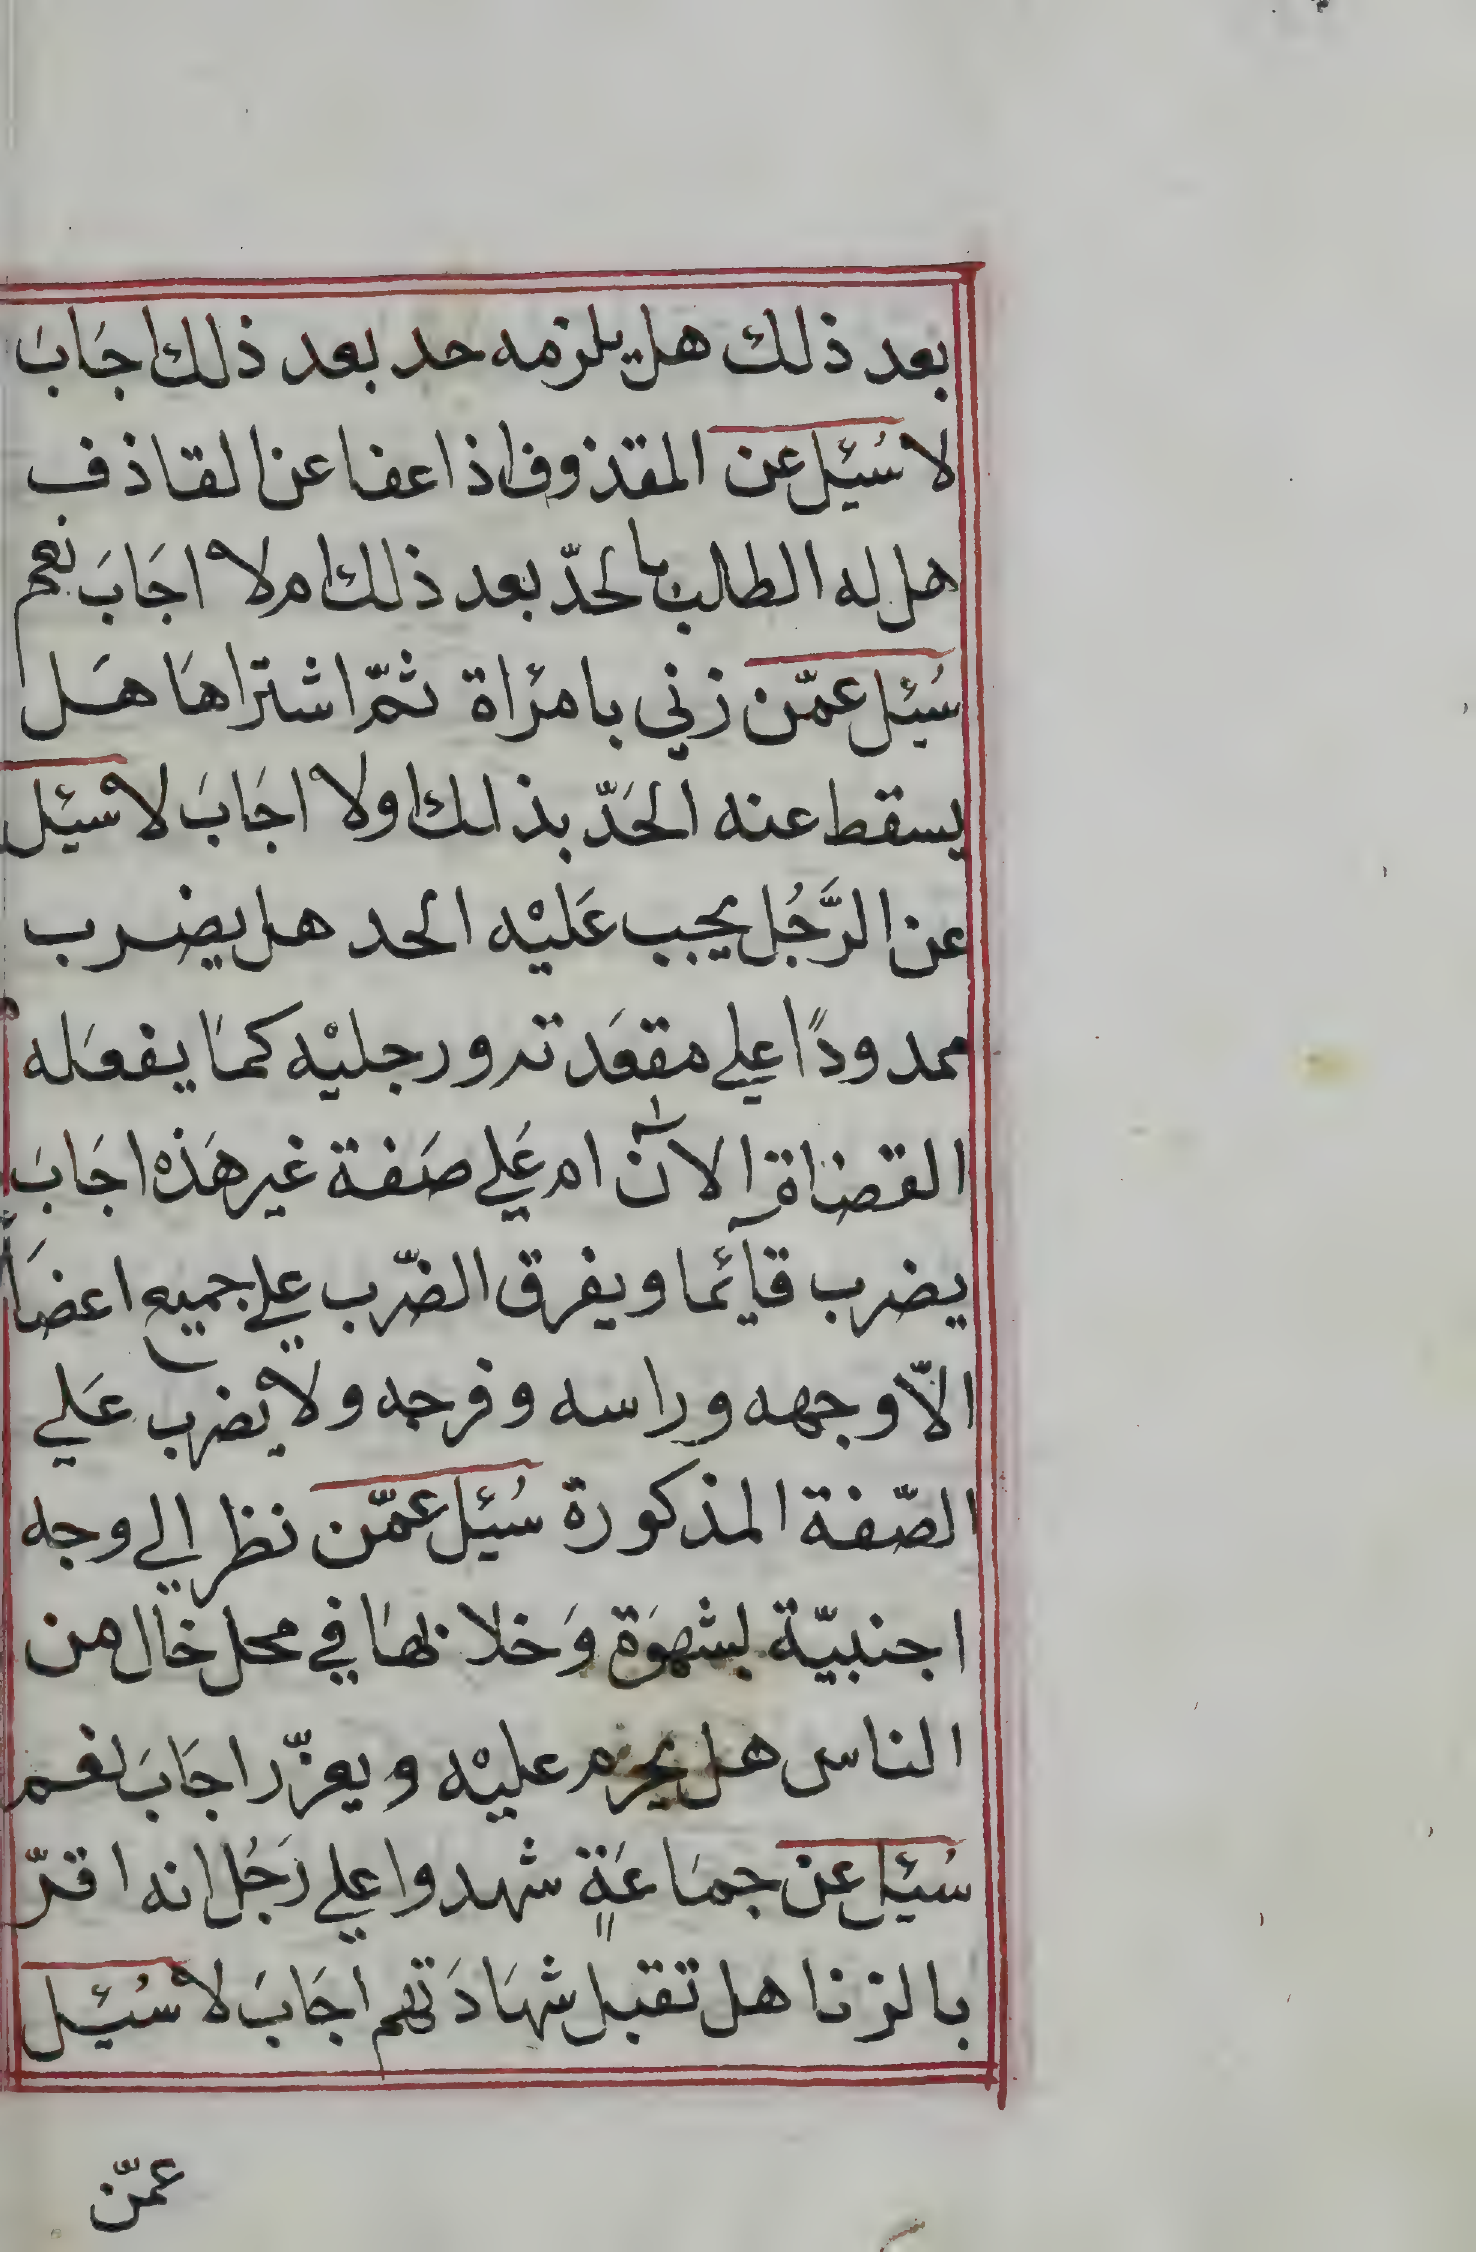 بعد ذلك هل يلزمه حد بعد ذلك اجَابَ
لا سُئِل عن المقذوف اذا عفا عن القاذف
هل له الطالب بالحدّ بعد ذلك ام لا اجَابَ نعم
سُئِل عمّن زني بامرُاة ثمّ اشتراهَا هَل
يسقط عنه الحَدّ بذلك اولا اجَابَ لا سئِل
عن الرَّجُل يجب عَليْه الحد هل يضرب
ممدودًا علي مقعَدته ورجليْه كمَا يفعَله
القضاة الآن ام عَلي صَفة غير هَذه اجَابَ
يضرب قآئما ويفرق الضّرب علي جميع اعضَاأ
الّا وجهه وراسه وفرجه ولا يضرب عَلي
الصّفة المذكورة سُئِل عمّن نظر الي وجه
اجنبيّة بشهوَة وَخلا بهَا في محل خال من
الناس هل يحرم عليْه ويعزّر اجَابَ نعم
سُئِل عن جمَاعَةٍ شهدوا علي رَجُل انه اقرّ
بالزنا هل تقبل شهَادَتهم اجَابَ لا سُئِل
عمّن